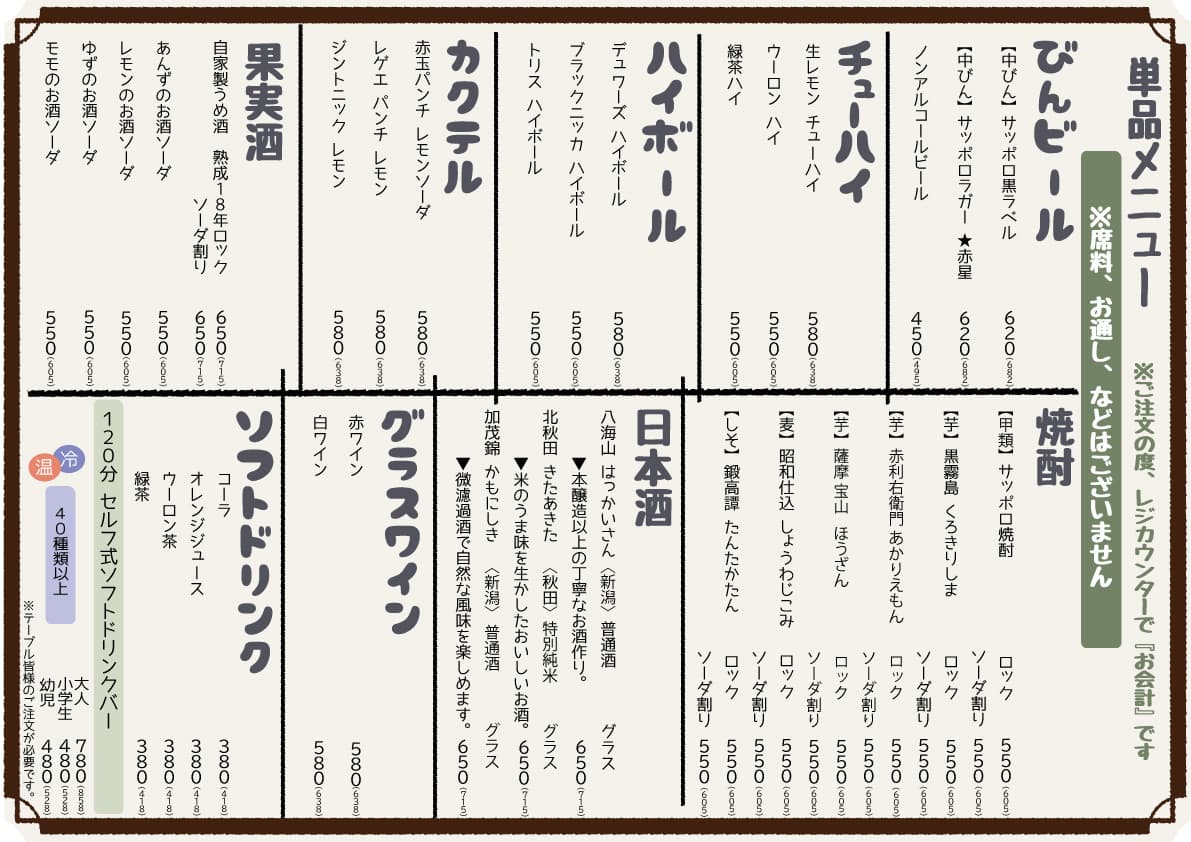 単品メニュー
※ご注文の度、レジカウンターで『お会計』です
※席料、お通し、などはございません
びんビール
【中びん】サッポロ黒ラベル 620(682)
【中びん】サッポロラガー ★赤星 620(682)
ノンアルコールビール 450(495)
チューハイ
生レモン チューハイ 580(638)
ウーロン ハイ 550(605)
緑茶ハイ 550(605)
ハイボール
デュワーズ ハイボール 580(638)
ブラックニッカ ハイボール 550(605)
トリス ハイボール 550(605)
カクテル
赤玉パンチ レモンソーダ 580(638)
レゲエ パンチ レモン 580(638)
ジントニック レモン 580(638)
果実酒
自家製うめ酒 熟成18年ロック 650(715)
ソーダ割り 650(715)
あんずのお酒ソーダ 550(605)
レモンのお酒ソーダ 550(605)
ゆずのお酒ソーダ 550(605)
モモのお酒ソーダ 550(605)
焼酎
【甲類】サッポロ焼酎 ロック 550(605)
ソーダ割り 550(605)
【芋】黒霧島 くろきりしま ロック 550(605)
ソーダ割り 550(605)
【芋】赤利右衛門 あかりえもん ロック 550(605)
ソーダ割り 550(605)
【芋】薩摩 宝山 ほうざん ロック 550(605)
ソーダ割り 550(605)
【麦】昭和仕込 しょうわじこみ ロック 550(605)
ソーダ割り 550(605)
【しそ】鍛高譚 たんたかたん ロック 550(605)
ソーダ割り 550(605)
日本酒
八海山 はっかいさん 〈新潟〉 普通酒 グラス
▼本醸造以上の丁寧なお酒作り。 650(715)
北秋田 きたあきた 〈秋田〉 特別純米 グラス
▼米のうま味を生かしたおいしいお酒。 650(715)
加茂錦 かもにしき 〈新潟〉 普通酒 グラス
▼微濾過酒で自然な風味を楽しめます。 650(715)
グラスワイン
赤ワイン 580(638)
白ワイン 580(638)
ソフトドリンク
コーラ 380(418)
オレンジジュース 380(418)
ウーロン茶 380(418)
緑茶 380(418)
120分 セルフ式ソフトドリンクバー
大人 780(858)
小学生 480(528)
幼児 480(528)
冷
温
40種類以上
※テーブル皆様のご注文が必要です。